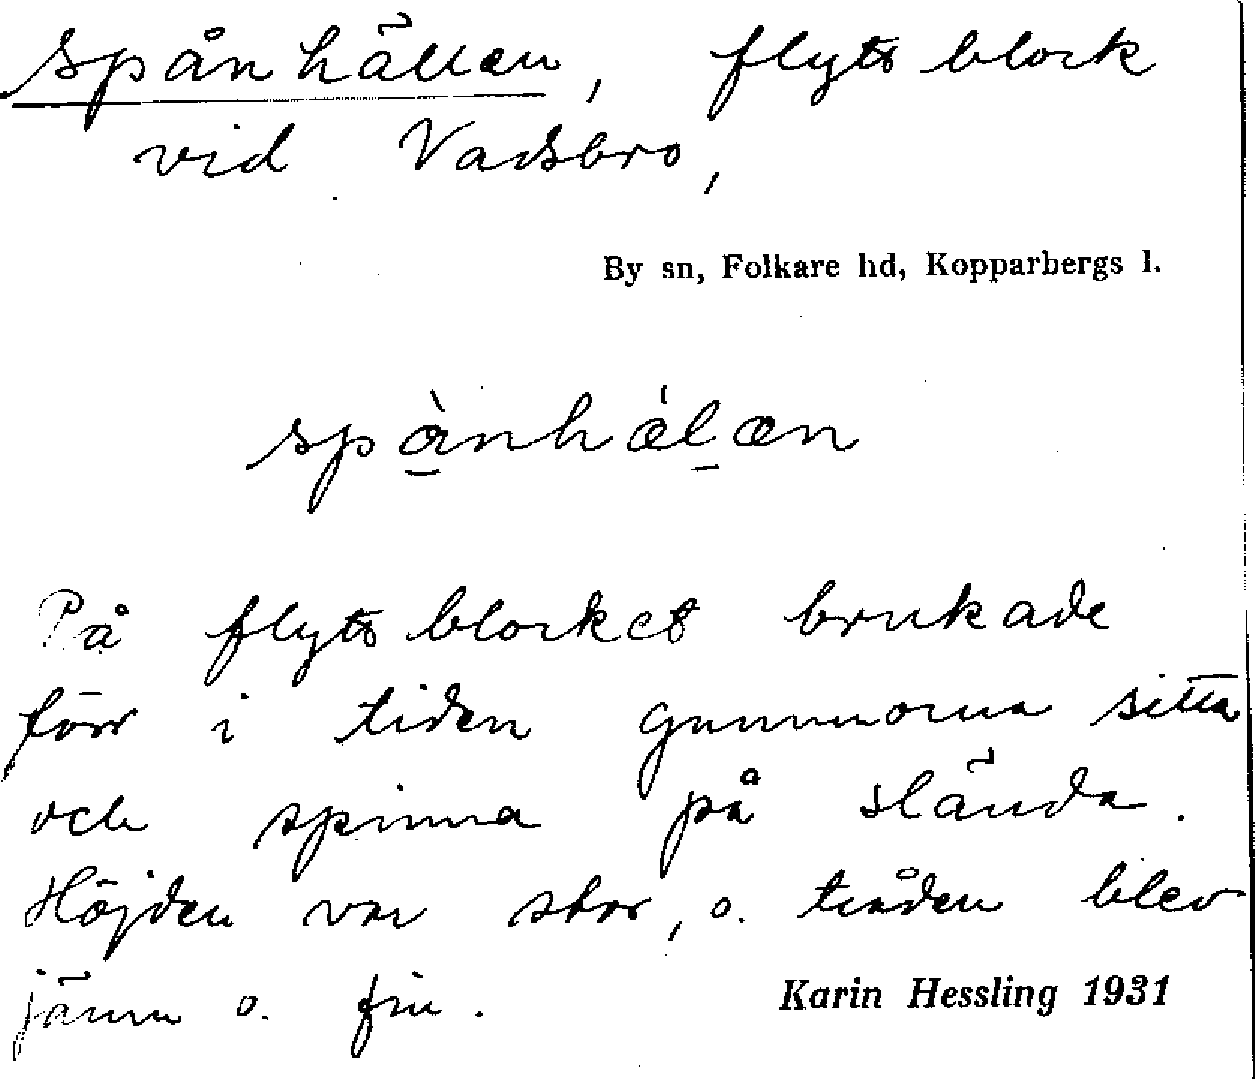 spånhällen, flyttblock
vid Vadsbro,
By sn, Folkare hd, Kopparbergs l.
spànhǽlæn
På flyttblocket brukade
förr i tiden gummorna sitta
och spinna på slända.
Höjden var stor, o. tråden blev
jämn o. fin.
Karin Hessling 1931